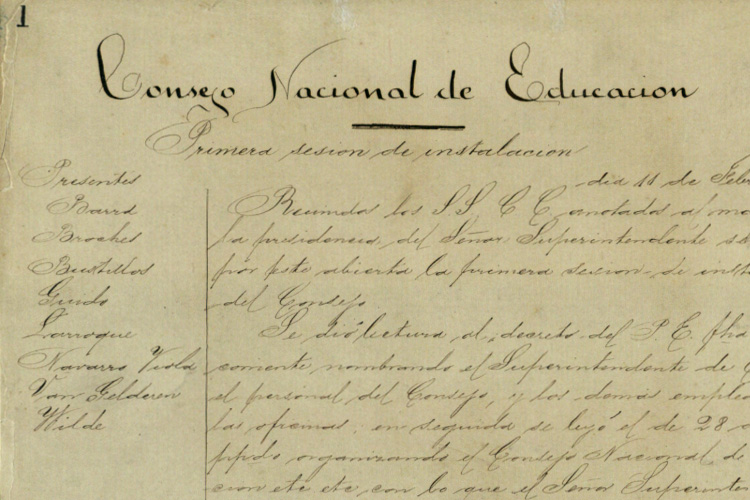 1
Consejo Nacional de Educacion
Primera sesion de instalacion
dia 11 de Febr
Presentes
Barra
Broches
Bustillos
Guido
Larroque
Navarro Viola
Van Gelderen
Wilde
Reunidos los S.S. C C anotados al ma
la presidencia del Señor Superintendente se
por este abierta la primera sesion de inst
del Consejo
Se dió lectura al decreto del P. E. fha
camente nombrando el Superintendente de
el personal del Consejo, y los demás emplea
las oficinas; en seguida se leyó el de 28
ppdo organizando el Consejo Nacional de
cion etc etc con lo que el Señor Superinten